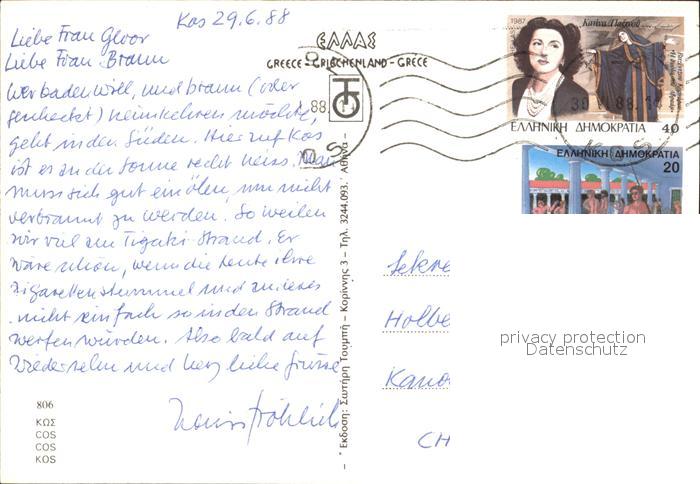 Kos 29.6.88
Liebe Frau Gloor
Liebe Frau Braun
Wer baden will, und braun (oder
gescheckt) heimkehren möchte,
geht in den Süden. Hier auf Kos
ist es an der Sonne recht heiss. Man
muss sich gut einölen, um nicht
verbrannt zu werden. So weilen
wir viel am Tigaki-Strand. Er
wäre schön, wenn die Leute ihre
Zigarettenstummel und anderes
nicht einfach so in den Strand
werfen würden. Also bald auf
Wiedersehn und herzliche Grüsse
Fröhlich
806
ΚΩΣ
COS
COS
KOS
ΕΛΛΑΣ
GREECE - GRIECHENLAND - GRECE
Έκδοση: Σωτήρη Τουμπή – Κορίννης 3 – Τηλ. 3244.093. Αθήνα
1987
Κατίνα Παξινού
ΕΛΛΗΝΙΚΗ ΔΗΜΟΚΡΑΤΙΑ 40
30 VI 88
ΕΛΛΗΝΙΚΗ ΔΗΜΟΚΡΑΤΙΑ
20
88
Sekre
Holbe
Kano
CH
privacy protection
Datenschutz